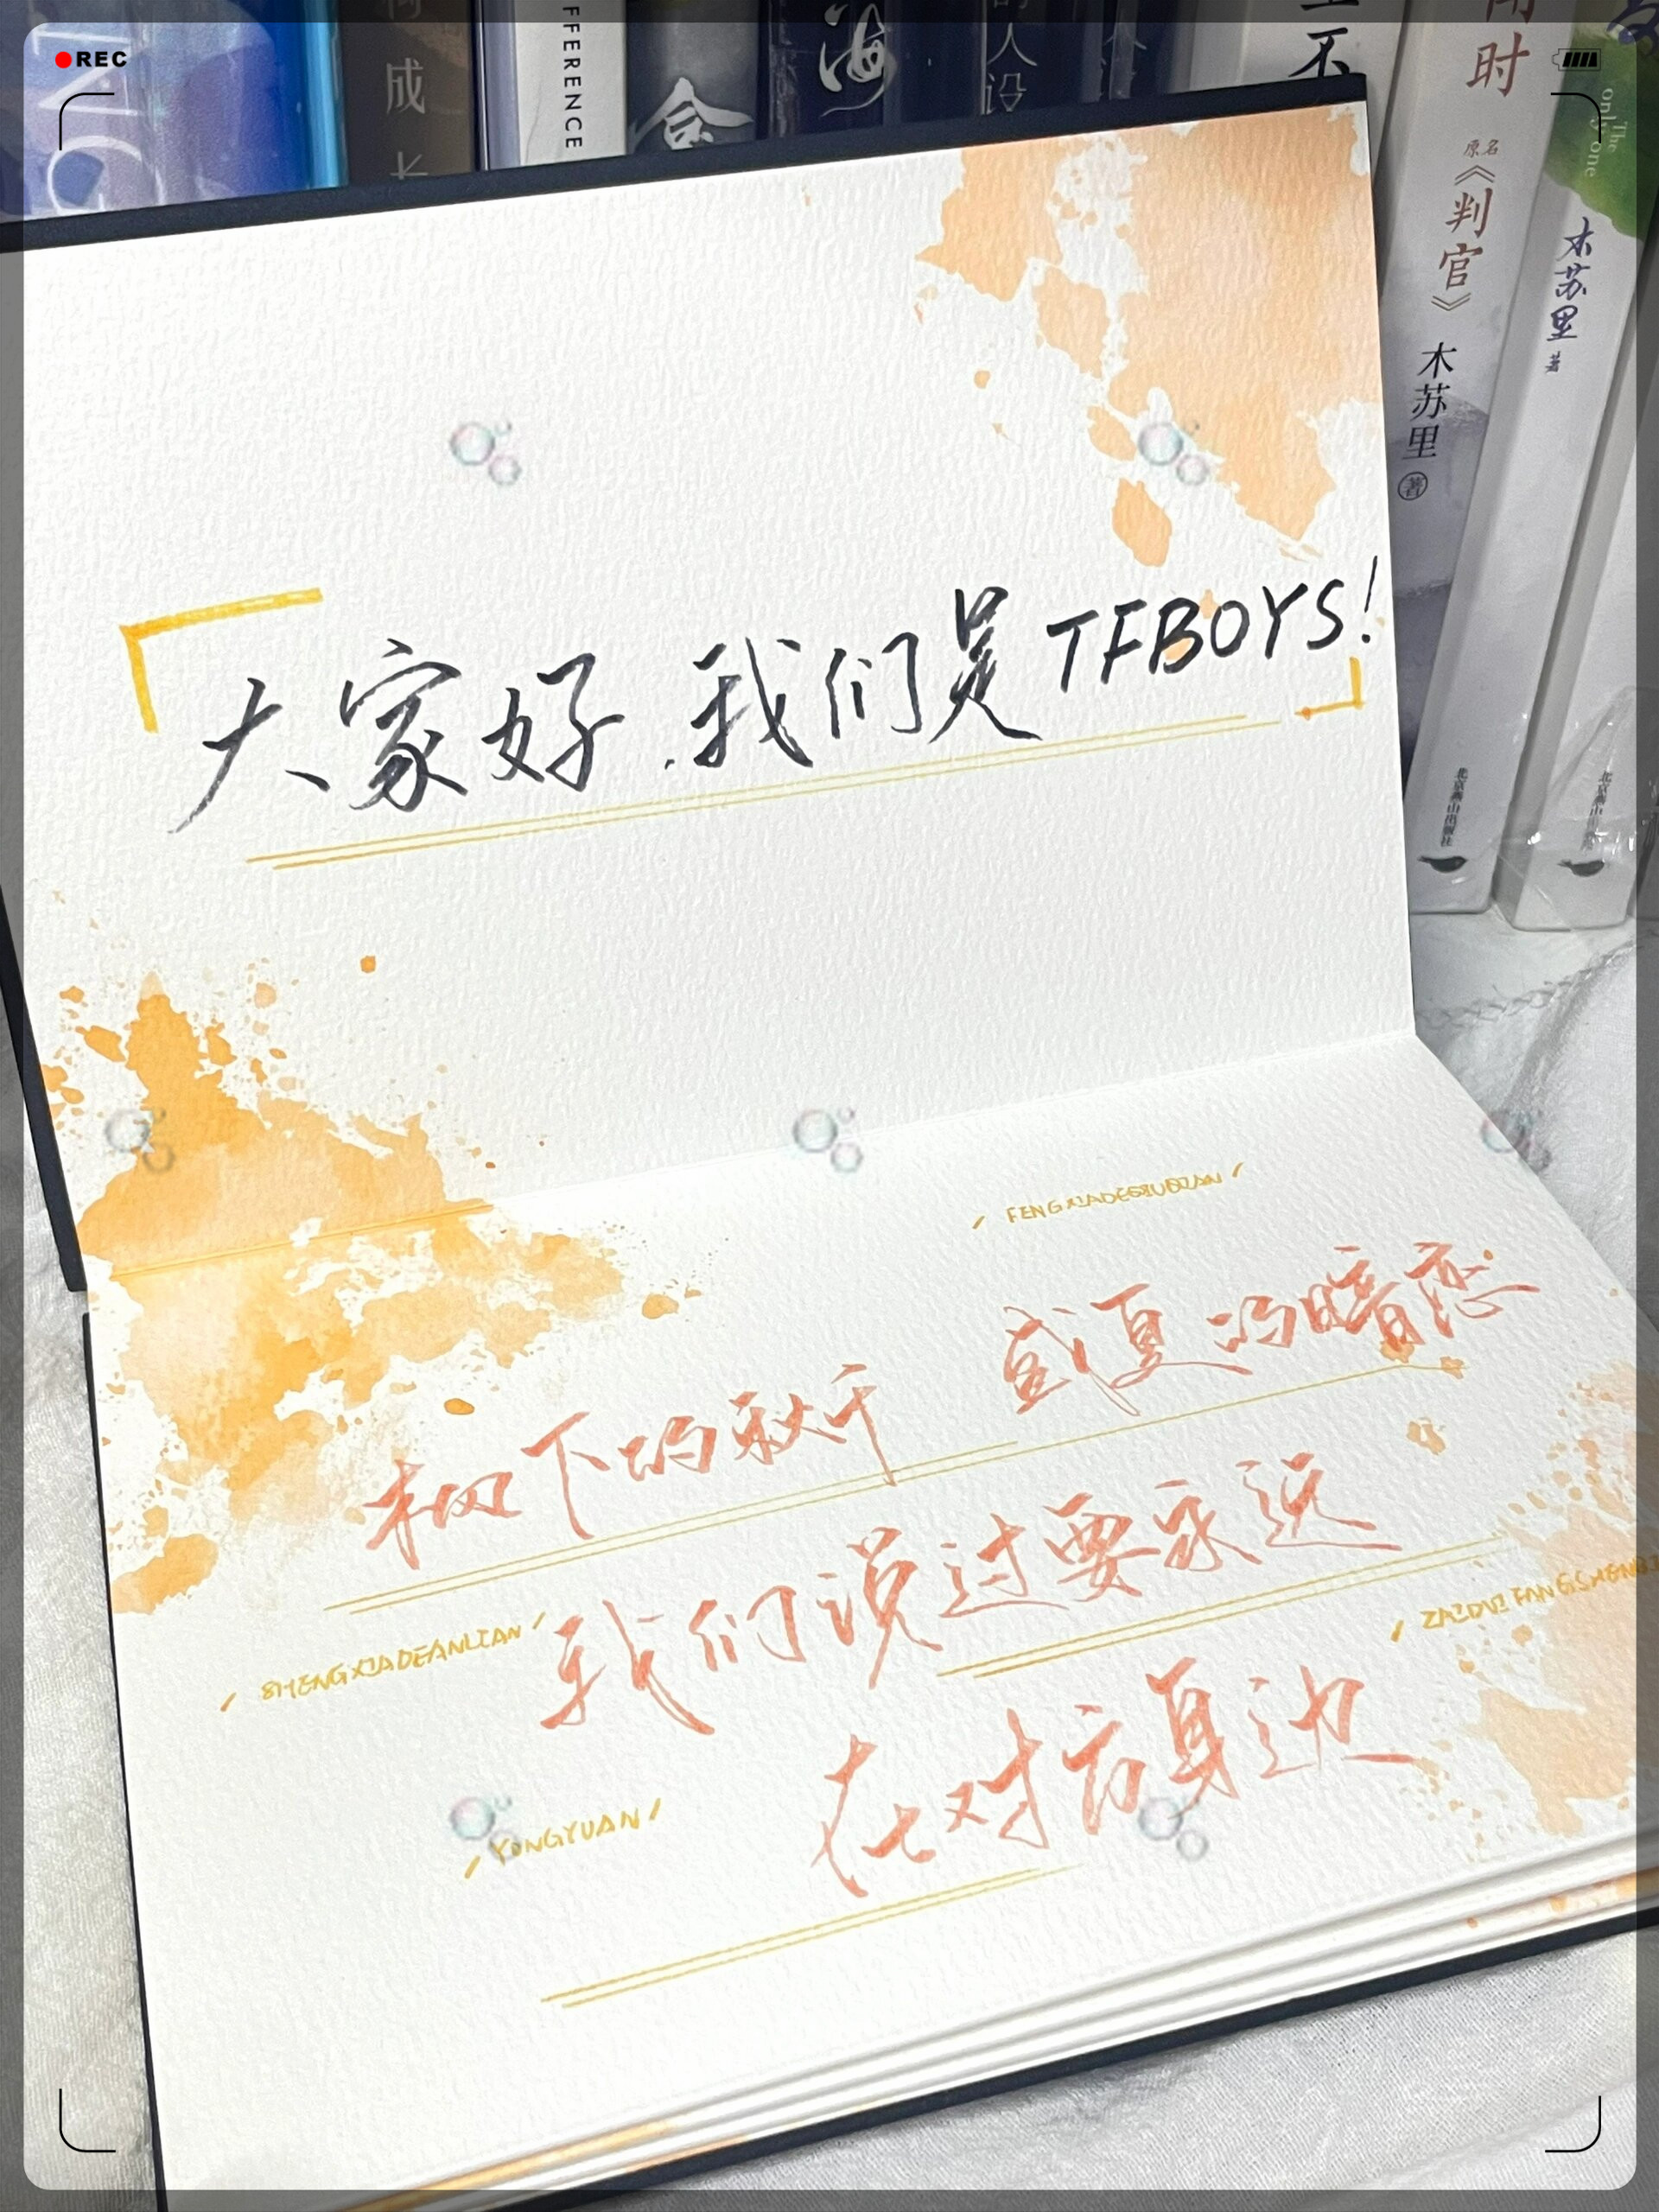 REC
成长
FFERENCE
海
人设
不
时
原名
《判官》
木苏里 著
The only one
木苏里 著
北京燕山出版社
大家好.我们是TFBOYS!
FENGXIADEQIUQIAN
树下的秋千 盛夏的暗恋
SHENGXIADEANLIAN
我们说过要永远
ZAIDUIFANGSHENB
YONGYUAN
在对方身边